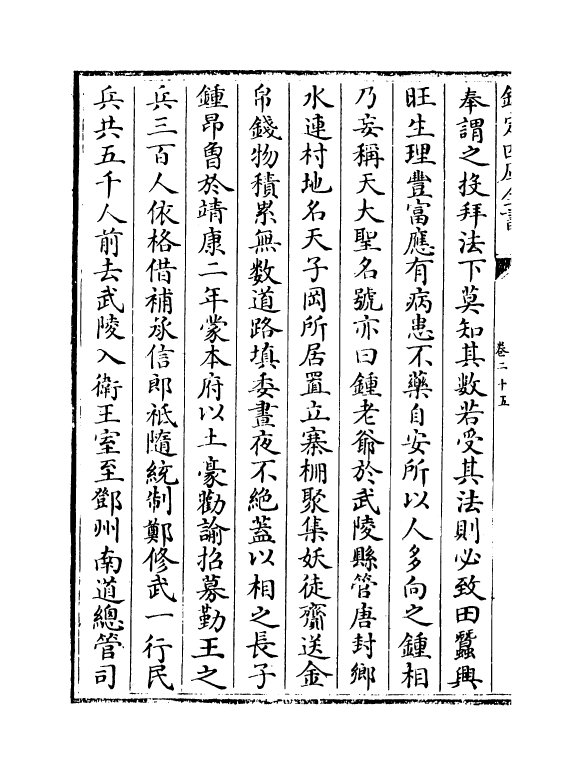 欽定四庫全書
卷二十五
奉謂之投拜法下莫知其數若受其法則必致田蠶興
旺生理豐富應有病患不藥自安所以人多向之鍾相
乃妄稱天大聖名號亦曰鍾老爺於武陵縣管唐封鄉
水連村地名天子岡所居置立寨柵聚集妖徒齎送金
帛錢物積累無数道路填委晝夜不絶蓋以相之長子
鍾昂魯於靖康二年蒙本府以土豪勸諭招募勤王之
兵三百人依格借補承信郎祗隨統制鄭修武一行民
兵共五千人前去武陵入衛王室至鄧州南道總管司